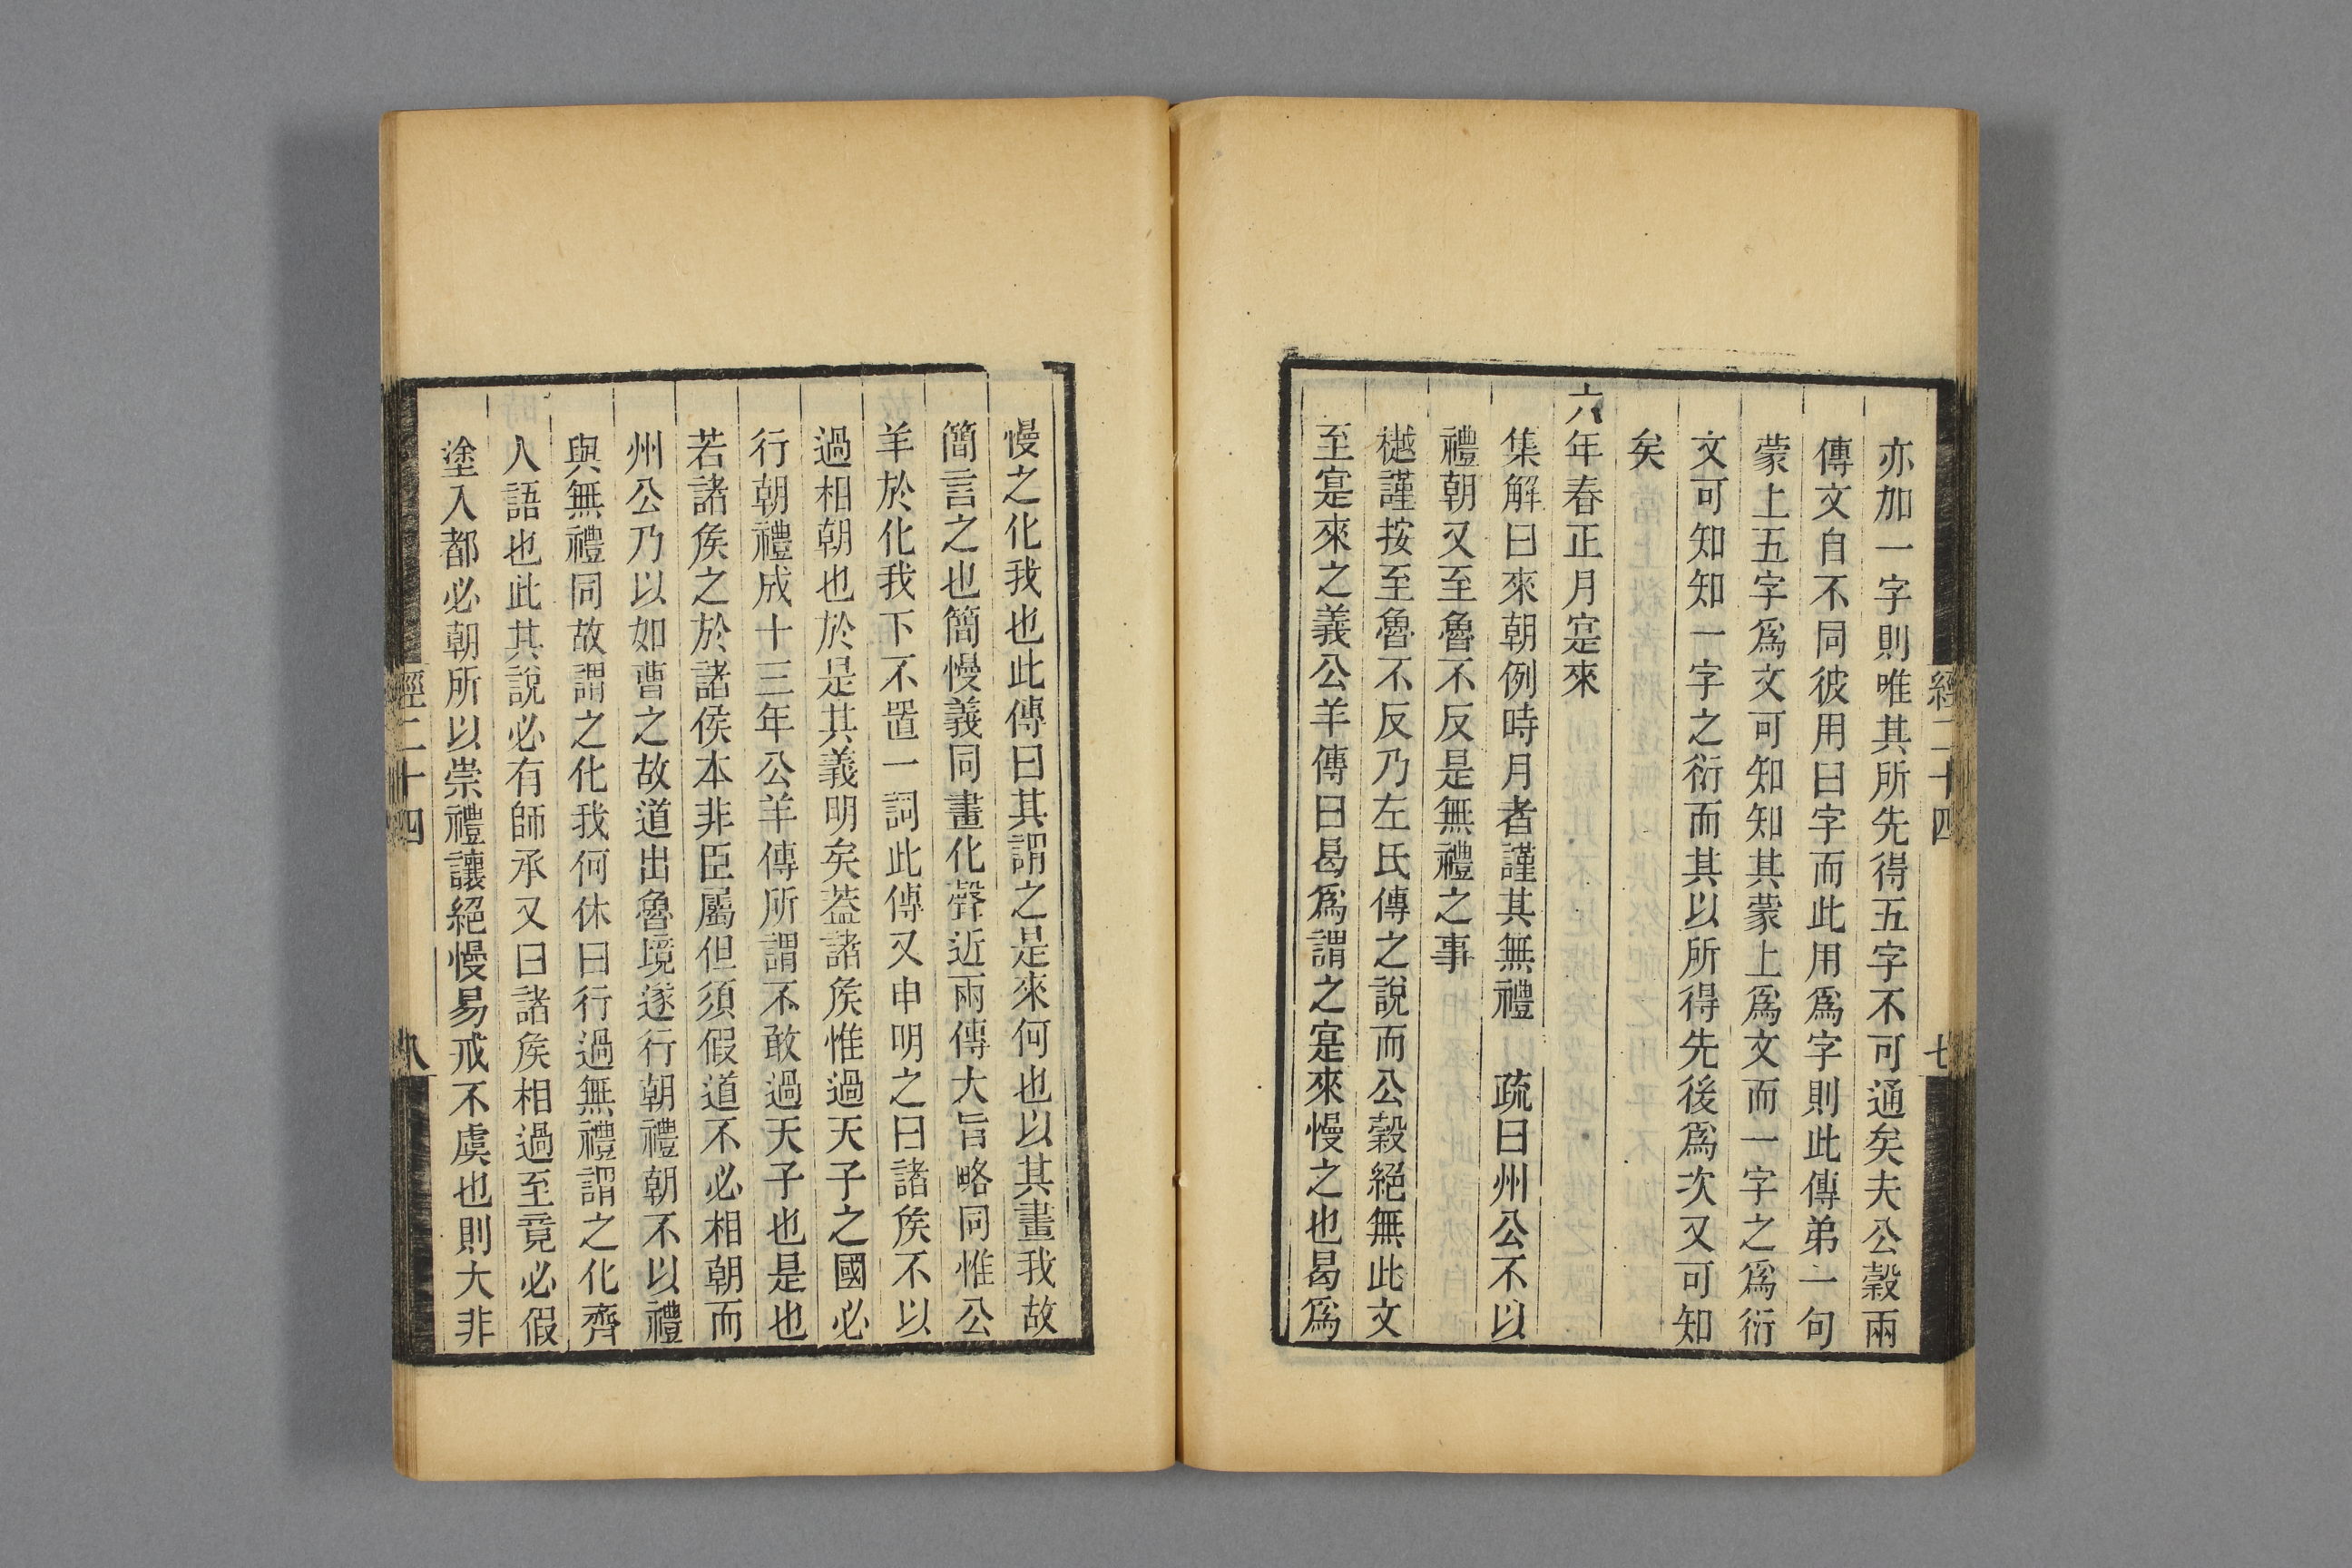 經二十四
七
亦加一字則唯其所先得五字不可通矣夫公穀兩
傳文自不同彼用曰字而此用爲字則此傳弟一句
蒙上五字爲文可知知其蒙上爲文而一字之爲衍
文可知知一字之衍而其以所得先後爲次又可知
矣
六年春正月寔來
集解曰來朝例時月者謹其無禮　疏曰州公不以
禮朝又至魯不反是無禮之事
樾謹按至魯不反乃左氏傳之說而公穀絕無此文
至寔來之義公羊傳曰曷爲謂之寔來慢之也曷爲
慢之化我也此傳曰其謂之是來何也以其畫我故
簡言之也簡慢義同畫化聲近兩傳大旨略同惟公
羊於化我下不置一詞此傳又申明之曰諸矦不以
過相朝也於是其義明矣蓋諸矦惟過天子之國必
行朝禮成十三年公羊傳所謂不敢過天子也是也
若諸矦之於諸侯本非臣屬但須假道不必相朝而
州公乃以如曹之故道出魯境遂行朝禮朝不以禮
與無禮同故謂之化我何休曰行過無禮謂之化齊
人語也此其說必有師承又曰諸矦相過至竟必假
塗入都必朝所以崇禮讓絕慢易戒不虞也則大非
經二十四
八